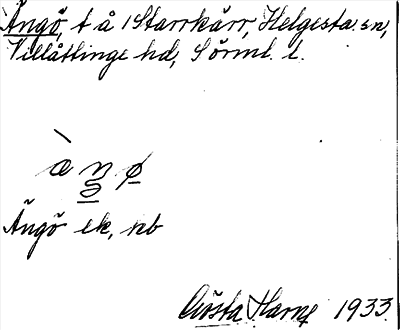 Ängö, t å 1 Starrkärr, Helgesta sn,
Villåttinge hd, Sörml. l.
Ängö ek, nb
Gösta Harne 1933.